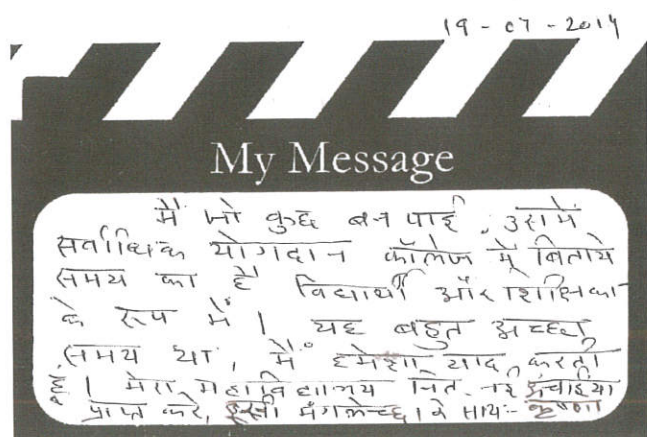 19-07-2014
My Message
मैं जो कुछ बन पाई, उसमें
सर्वाधिक योगदान कॉलेज में बिताये
समय का है विद्यार्थी और शिक्षिका
के रूप में। यह बहुत अच्छा
समय था, मैं हमेशा याद करती
हूँ। मेरा महाविद्यालय नित नई ऊंचाइया
प्राप्त करे, इसी मंगलेच्छा के साथ:-